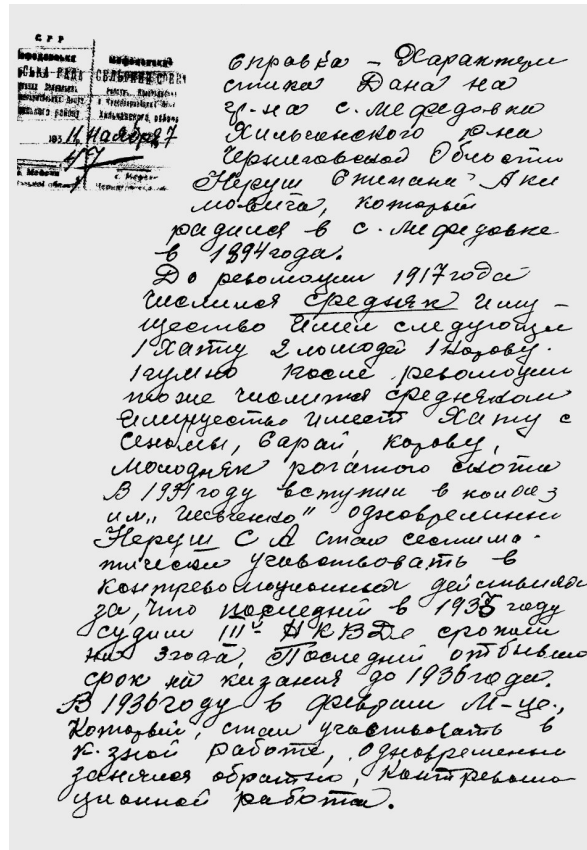 С Р Р
СЬКА РАДА СЕЛЬСКИЙ СОВЕТ
193 11 ноября 7
47
справка – Характери
стика Дана на
гр-на с. Мефедовка
Хильчанского р-на
Черниговской Области
Неруш Степана Аки
мовича, который
родился в с. Мефедовке
в 1894 года.
До революции 1917 года
числился средняк иму –
щество имел следующи
1 Хату 2 лошодей 1 корову.
1 гумно после революции
тоже числится средняком
имищество имеет Хату с
сеньмы, сарай, корову,
молодняк рогатого скота
В 1931 году вступил в колхоз
им „ " одновременни
Неруш С А стал систима-
тически учавствовать в
контреволюционных действиях
за, что последний в 1933 году
судим III й НКВДе сроком
на 3 года, Последний отбывал
срок на кизания до 1936 года.
В 1936 году в феврали м-це,
который, стал участвовать в
к-зной работе, одновременно
занялся обратно, контреволю
ционной работой.